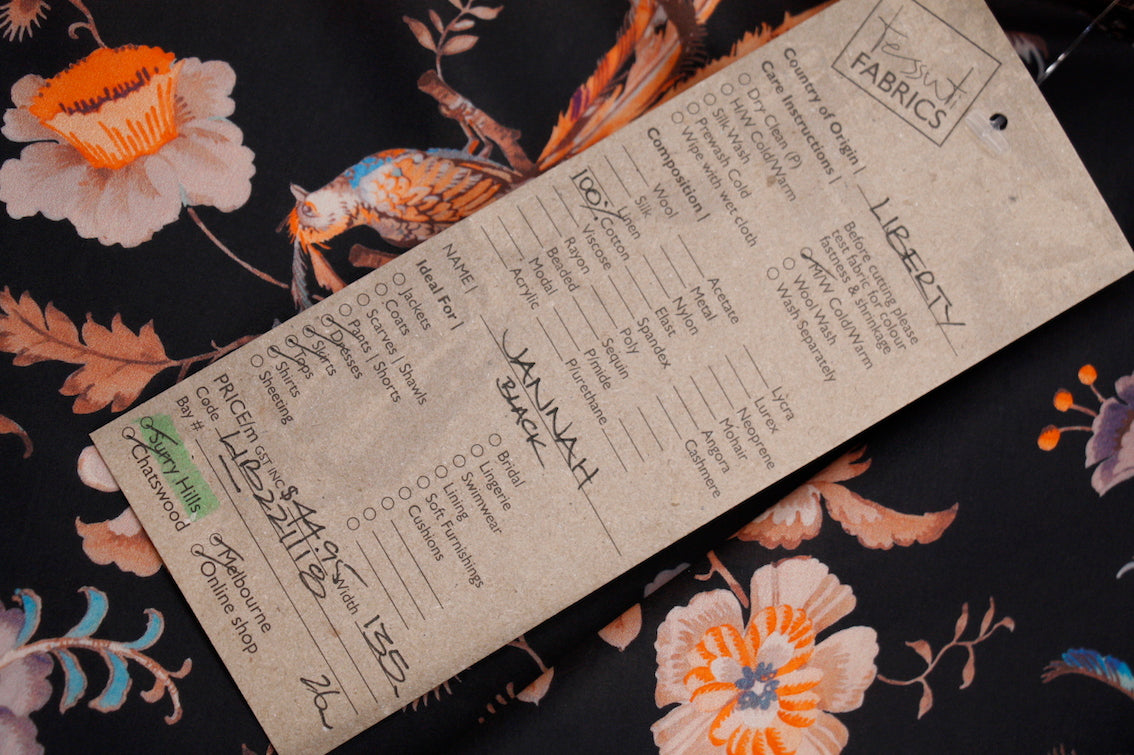 tessuti
FABRICS
Country of Origin | LIBERTY
Care Instructions |
Dry Clean (P)
H/W Cold/Warm
Silk Wash
Prewash Cold
Wipe with wet cloth
Before cutting please
test fabric for colour
fastness & shrinkage
M/W Cold/Warm
Wool Wash
Wash Separately
Composition |
Wool
Silk
Linen
100% Cotton
Viscose
Rayon
Beaded
Modal
Acrylic
Acetate
Metal
Nylon
Elast
Spandex
Poly
Sequin
P/mide
P/urethane
Lycra
Lurex
Neoprene
Mohair
Angora
Cashmere
NAME | JANNAH
BLACK
Ideal For |
Jackets
Coats
Scarves | Shawls
Pants | Shorts
Dresses
Skirts
Tops
Shirts
Sheeting
Bridal
Lingerie
Swimwear
Lining
Soft Furnishings
Cushions
PRICE/m GST INC $44.95 Width 135
Code LIB221118
Bay #
Surry Hills
Chatswood
Melbourne
Online shop